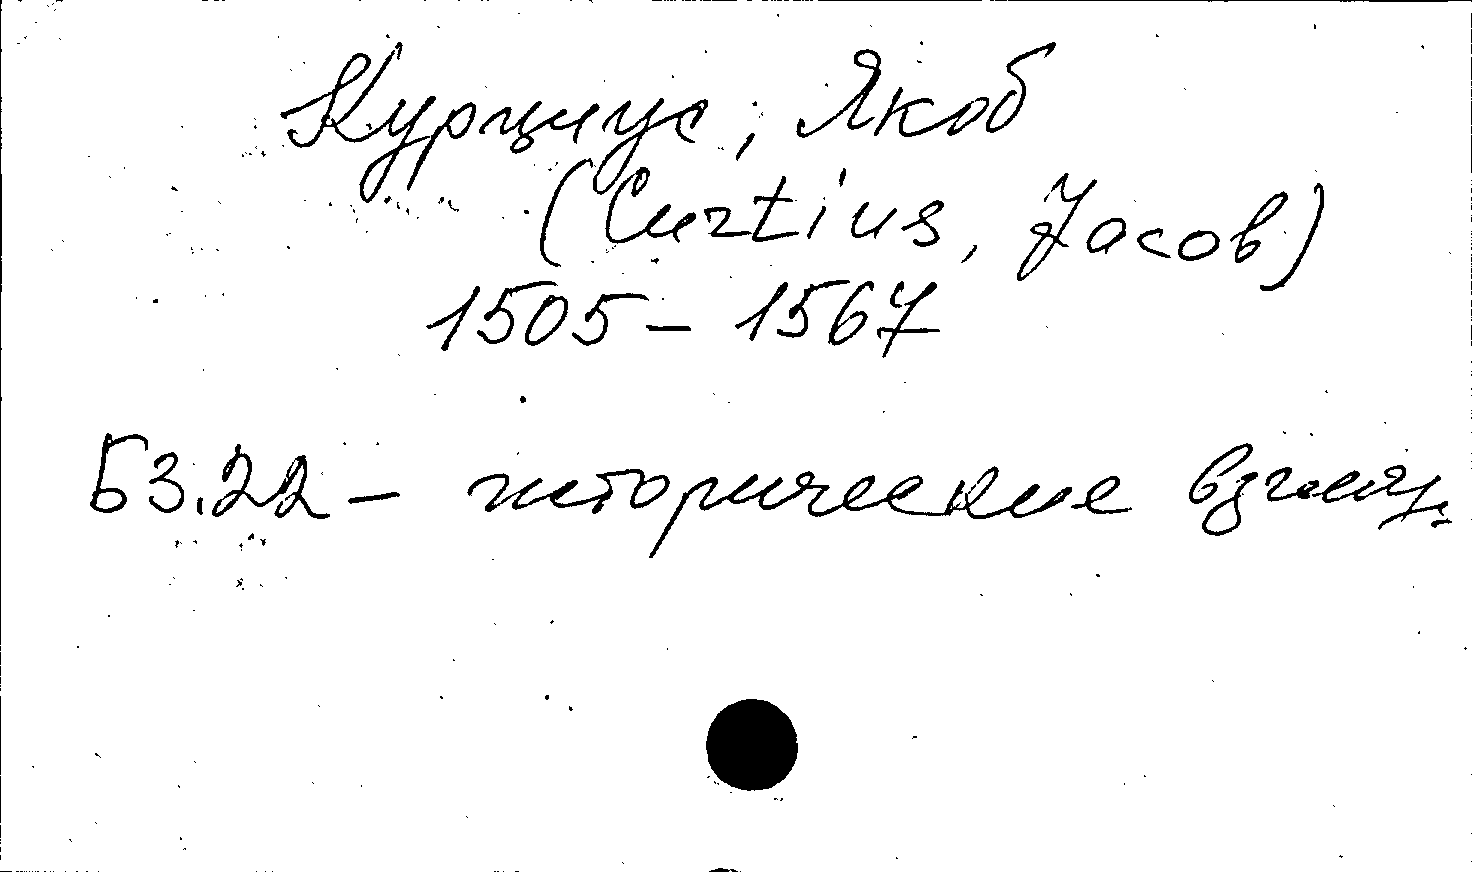 Курциус, Якоб
(Curtius, Jacob)
1505 – 1567
Б3.22 – исторические взгляд.